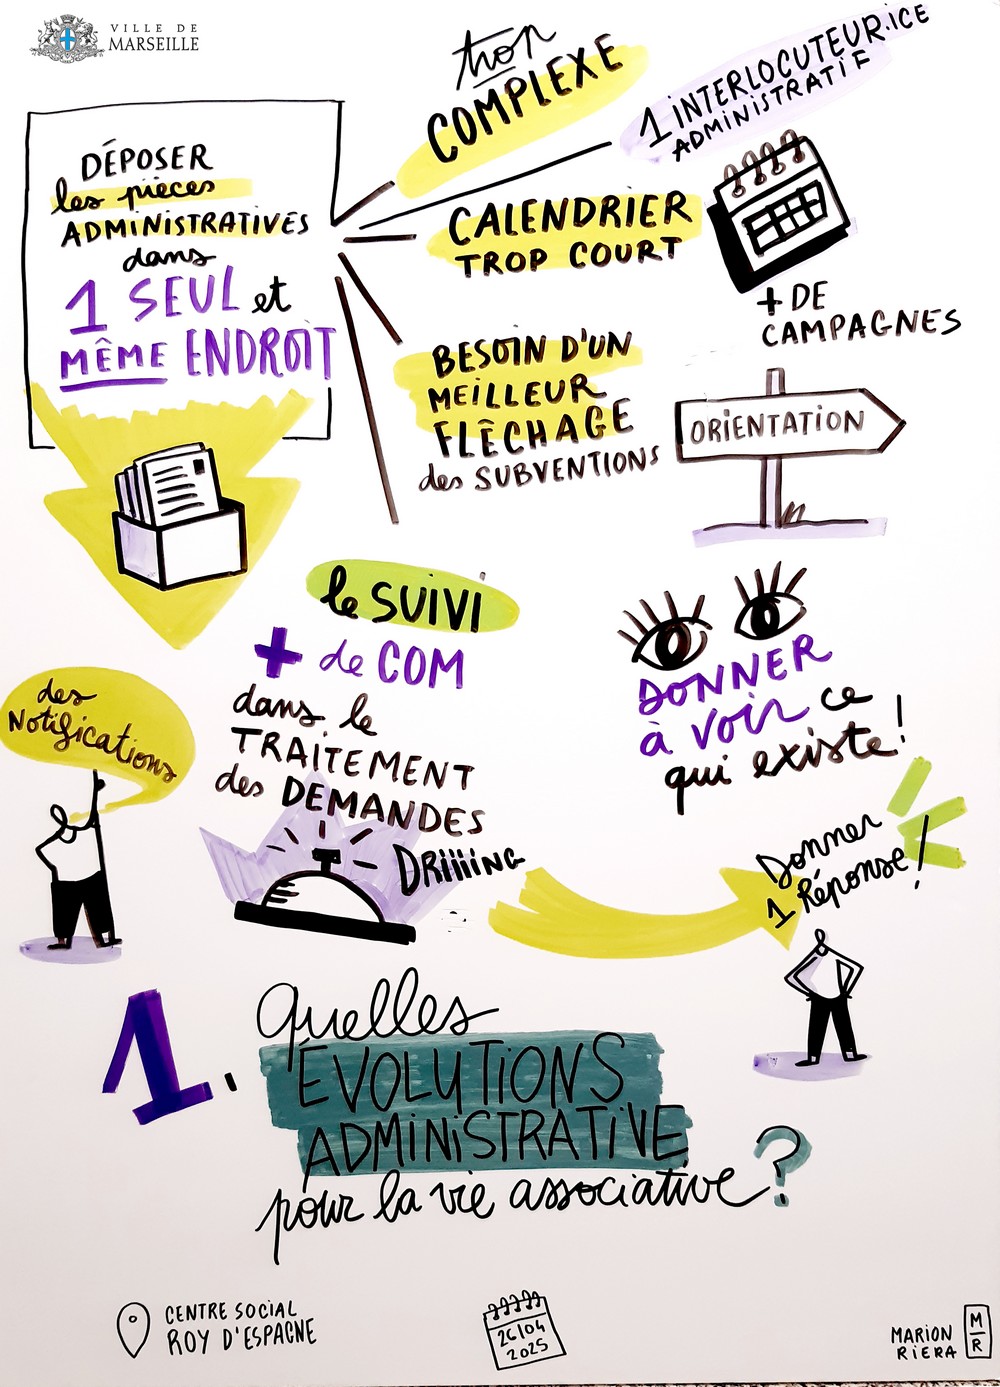 VILLE DE
MARSEILLE
trop
COMPLEXE
1 INTERLOCUTEUR.ICE
ADMINISTRATIF
DÉPOSER
les pièces
ADMINISTRATIVES
dans
1 SEUL et
MÊME ENDROIT
CALENDRIER
TROP COURT
+ DE
CAMPAGNES
BESOIN D'UN
MEILLEUR
FLÊCHAGE
des SUBVENTIONS
ORIENTATION
le SUIVI
+ de COM
dans le
TRAITEMENT
des DEMANDES
DRIIIING
des
Notifications
DONNER
à voir ce
qui existe !
Donner
1 Réponse !
1. Quelles
ÉVOLUTIONS
ADMINISTRATIVE
pour la vie associative ?
CENTRE SOCIAL
ROY D'ESPAGNE
26/04
2025
MARION
RIERA
M
R